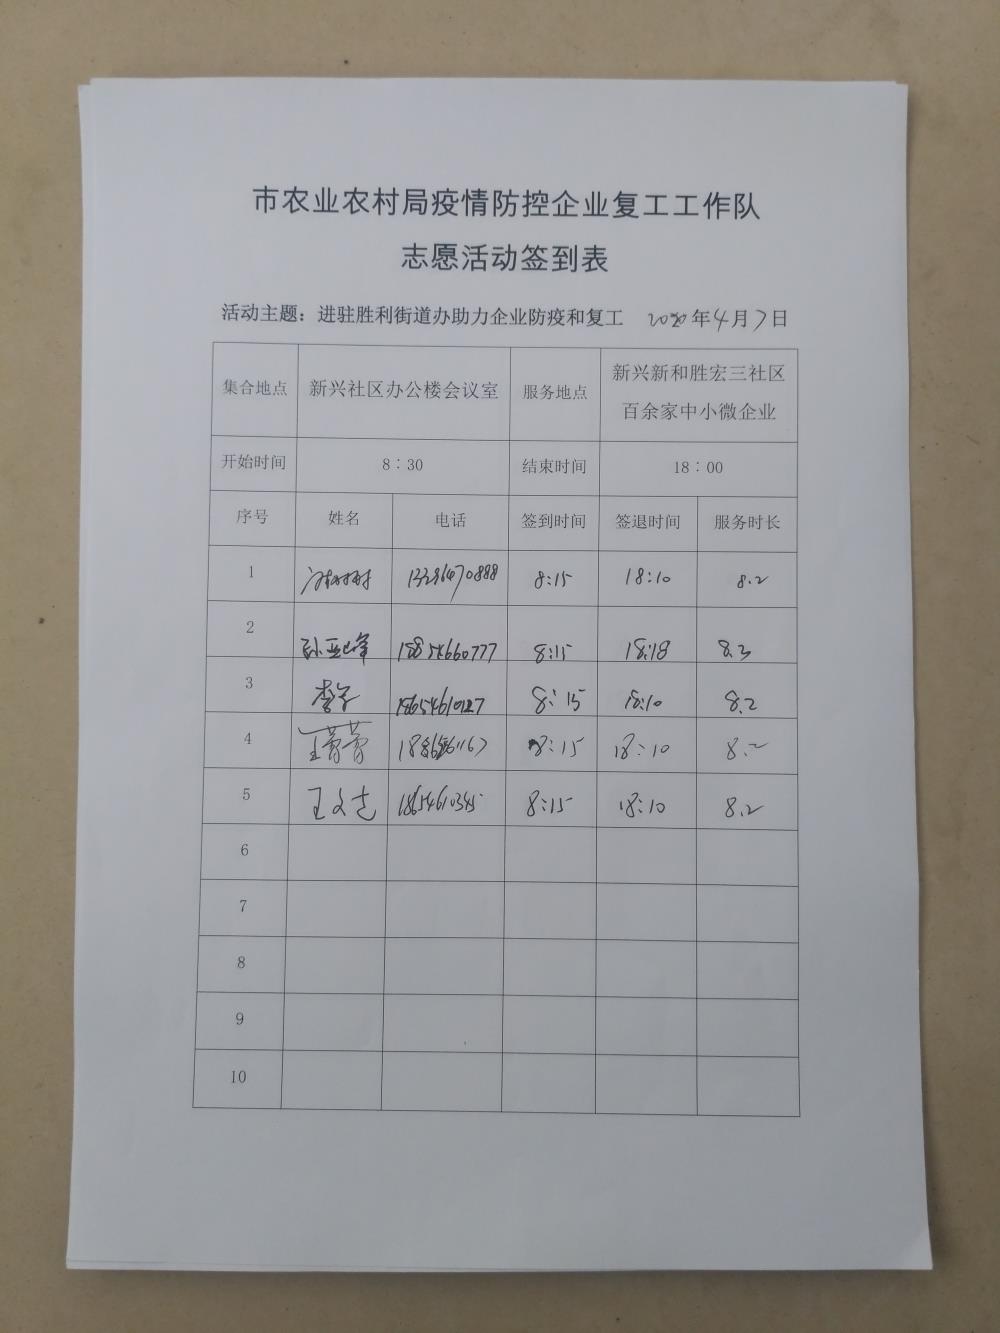 市农业农村局疫情防控企业复工工作队
志愿活动签到表
活动主题：进驻胜利街道办助力企业防疫和复工 2020年4月7日
集合地点 新兴社区办公楼会议室 服务地点 新兴新和胜宏三社区
百余家中小微企业
开始时间 8：30 结束时间 18：00
序号 姓名 电话 签到时间 签退时间 服务时长
1 8:15 18:10 8.2
2 孙亚峰 18854660777 8:15 18:18 8.3
3 18654610127 8:15 18:10 8.2
4 王蕾蕾 8:15 18:10 8.2
5 王文志 18654610345 8:15 18:10 8.2
6
7
8
9
10